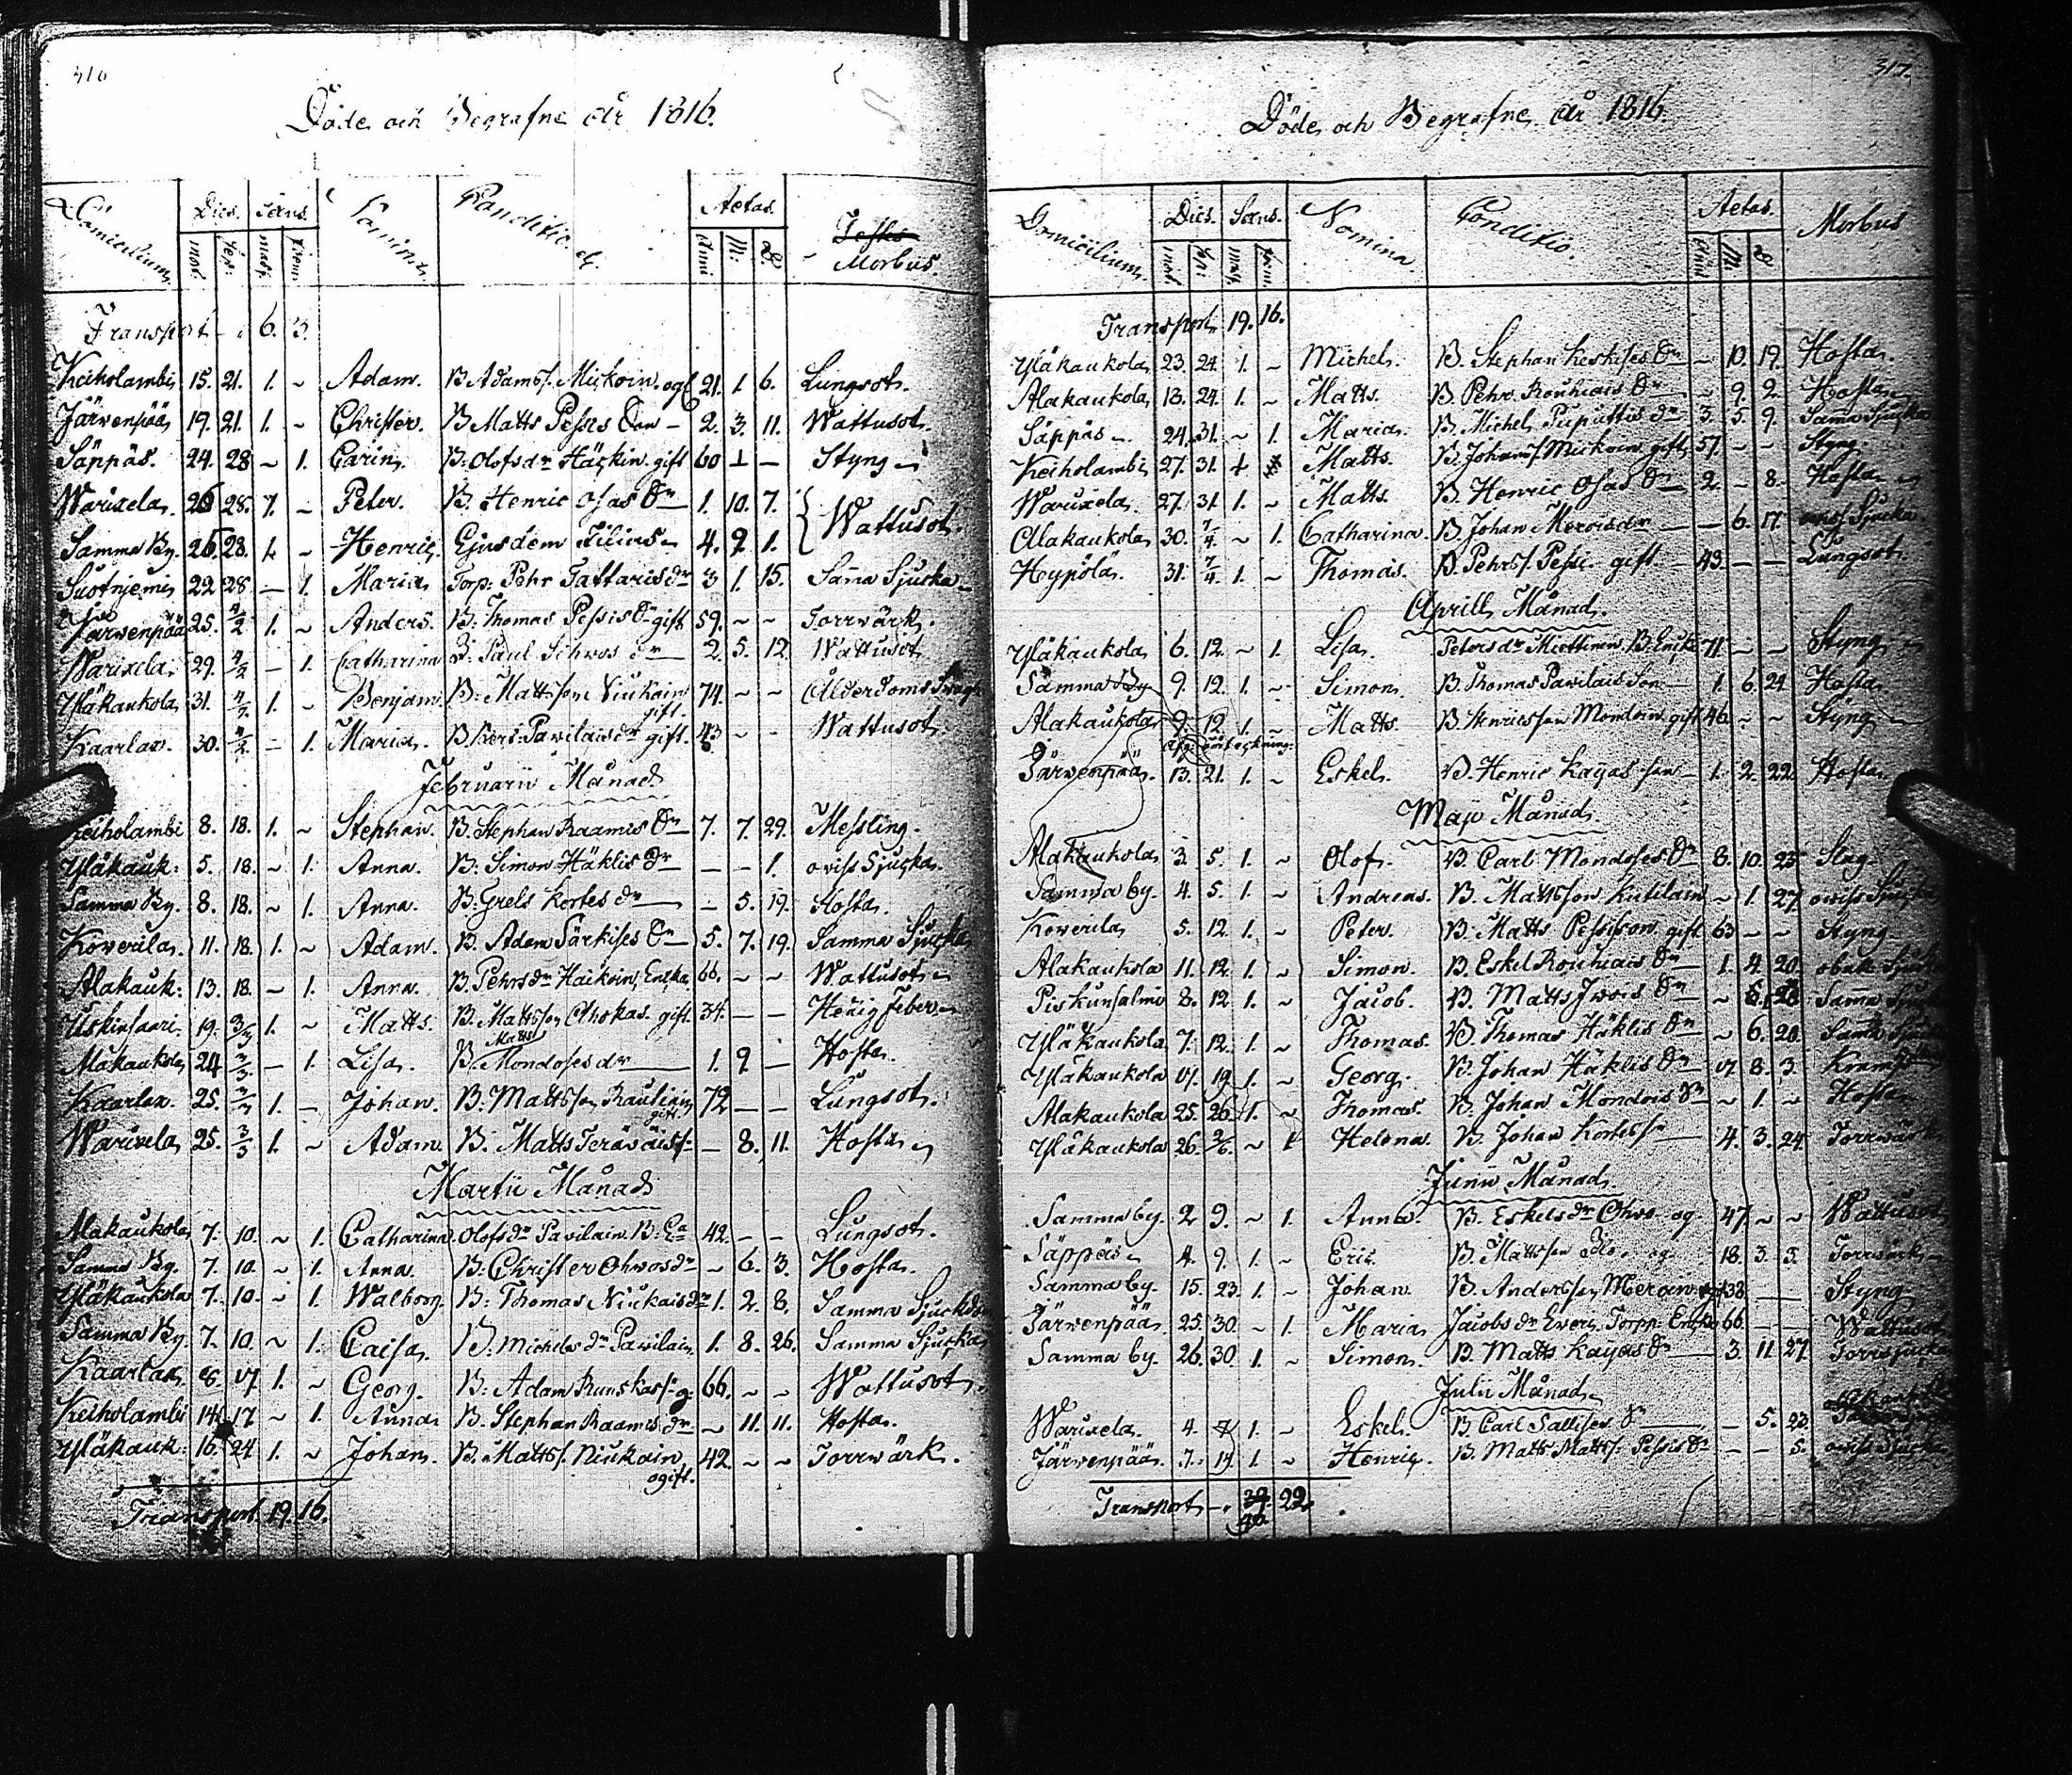 316
Döde och Begrafne år 1816.
Domicilium Dies. Sexus. Nomina Conditio Aetas. Testes Morbus.
mort. sep. masc. fem. Anni M: D.
Transport - 6. 3.
Keiholambi 15. 21. 1. ~ Adam. B. Adamss. Mickoin ogf 21. 1. 6. Lungsot.
Järvenpää 19. 21. 1. ~ Christer. B Matts Pessis Son - 2. 3. 11. Wattusot.
Säppäs. 24. 28 ~ 1. Carin B. Olofs dr Häckin gift 60 1 - Styng
Warixela. 26 28. 1. ~ Peter. B. Henric Ohas Sn 1. 10. 7. Wattusot.
Samma By. 26. 28. 1. ~ Henric Ejusdem Filius 4. 9. 1.
Suotniemi 22 28 - 1. Maria Torp. Pehr Tattaris dr 3 1. 15. Sama Sjucka
Järvenpää 25. 4/2 1. ~ Anders. B. Thomas Pessis Sn gift 59. ~ ~ Torrwärk.
Warixela. 29. 4/2 - 1. Catharina Paul dr 2. 5. 12. Wattusot
Yläkaukola 31. 4/2 1. ~ Benjam. B. Mattsson Niukain gift. 74. ~ ~ Ålderdoms
Kaarlax. 30. 4/2 - 1. Maria. B. Pawilais dr gift. 43 ~ ~ Wattusot.
Februarii Månad
Keiholambi 8. 18. 1. ~ Stephan. B. Stephan Raamis Sn 7. 7. 29. Messling.
Yläkauk: 5. 18. ~ 1. Anna. B. Simon Häklis dr - - 1. oviss Sjucka.
Samma By. 8. 18. ~ 1. Anna. B. Grels Kortes dr - 5. 19. Hosta.
Koverila. 11. 18. 1. ~ Adam. B. Adam Särkises Sn 5. 7. 19. Samma Sjucka
Alakauk: 13. 18. - 1. Anna. B. Pehrs dr Haikoin, Encka 66. ~ ~ Wattusot
Uskinsaari. 19. 3/3 1. ~ Matts. B. Mattsson Ahokas. gift. 34. - - Hetzig feber
Alakaukola 24 3/3 - 1. Lisa. B. Matts Mondoses dr 1. 9. - Hosta.
Kaarlax. 25. 3/3 1. - Johan. B. Mattsson Rautiain gift. 72 - - Lungsot.
Warixela 25. 3/3 1. ~ Adam. B. Matts Teräväis - 8. 11. Hosta
Martii Månad
Alakaukola 7. 10. ~ 1. Catharina Olofs dr Pawilain. B: Ea 42. - - Lungsot.
Samma By. 7. 10. ~ 1. Anna. B. Christer Ohvos dr ~ 6. 3. Hosta.
Yläkaukola 7. 10. ~ 1. Walborg. B: Thomas Niukais dr 1. 2. 8. Samma Sjucka
Samma By. 7. 10. ~ 1. Caisa. B. Michels dr Pawilain 1. 8. 26. Samma Sjucka
Kaarlax 8. 17 1. ~ Georg. B: Adam g: 66. ~ ~ Wattusot
Keiholambi 14. 17 ~ 1. Anna B. Stephan Raamis dr ~ 11. 11. Hosta.
Yläkauk: 16. 24. 1. ~ Johan. B. Mattss. Niukain ogift. 42. ~ ~ Torrwärk.
Transport. 19. 16.
317.
Döde och Begrafne år 1816
Domicilium. Dies. Sexus. Nomina. Conditio. Aetas. Morbus
mort. sep. masc. fem. Anni M. D
Transport 19. 16.
Yläkaukola 23. 24. 1. ~ Michel. B. Stephan Keskises Sn ~ 10. 19. Hosta.
Alakaukola 13. 24. 1. ~ Matts. B. Pehr Rouhiais Sn ~ 9. 2. Hosta
Säppäs 24. 31. ~ 1. Maria. B. Michel Puputtis dr 3. 5. 9. Samma Sjucka
Keiholambi 27. 31. 1 Matts B. Johanss. Mickoin gift 57. - - Styng.
Warixela. 27. 31. 1. ~ Matts. B. Henric Ohas Sn 2. - 8. Hosta
Alakaukola 30. 7/4 ~ 1. Catharina. B. Johan Merois dr - 6. 17. oviss Sjucka
Heypölä. 31. 7/4. 1. ~ Thomas. B. Pehrss. Pessi. gift 43. - - Lungsot.
Aprill Månad.
Yläkaukola 6. 12. ~ 1. Lisa. Peters dr Miettinen B. Encka 71 - - Styng
Samma By 9. 12. 1. ~ Simon. B. Thomas Pawilais Son 1. 6. 24. Hosta
Alakaukola 9. 12. 1. ~ Matts. B. Henricsson gift 46. ~ ~ Styng
Järvenpää. 13. 21. 1. ~ Eskel. B. Henric Kayas son 1. 2. 22. Hosta
Maji Månad.
Alakaukola 3. 5. 1. ~ Olof. B. Carl Mondoses Sn 8. 10. 25. Slag.
Samma by. 4. 5. 1. ~ Andreas. B. Mattsson Kutilain ~ 1. 27. oviss
Koverila 5. 12. 1. ~ Peter. B. Matts Pessis son. gift 63 ~ ~ Styng
Alakaukola 11. 12. 1. ~ Simon. B. Eskel Rouhiais Sn 1. 4. 20.
Piskunsalmi 8. 12. 1. ~ Jacob. B. Matts Iwois Sn ~ Samma
Yläkaukola 7. 12. 1. ~ Thomas. B. Thomas Häklis Sn ~ 6. 20. Samma
Yläkaukola 17. 19. 1. ~ Georg. B. Johan Häklis Sn 17 8. 3.
Alakaukola 25. 26. 1. ~ Thomas. B. Johan Mondois Sn ~ 1. ~ Hosta
Yläkaukola 26. 2/6. ~ 1 Helena. B. Johan Kortes 4. 3. 24. Torrwärk
Junii Månad.
Samma by. 2 9. ~ 1. Anna. B. Eskels dr Ohvo og. 47. ~ ~ Wattusot
Säppäs 4. 9. 1. ~ Eric. B. Mattsson og. 18. 3. 3. Torrwärk
Samma by. 15. 23. 1. ~ Johan. B. Andersson Meroin 38. Styng
Järvenpää. 25. 30. ~ 1. Maria Jacobs dr Torp: Encka 66. - - Wattusot
Samma by. 26. 30 1. ~ Simon. B. Matts Kayas Sn 3. 11. 27. Torrsjucka
Julii Månad
Warixela. 4. 7 1. ~ Eskel. B. Carl Sallises Sn - 5. 23.
Järvenpää 7. 14 1. ~ Henric. B. Matts Mattss. Pessis Sn - - 5. oviss Sjucka
Transport 22.